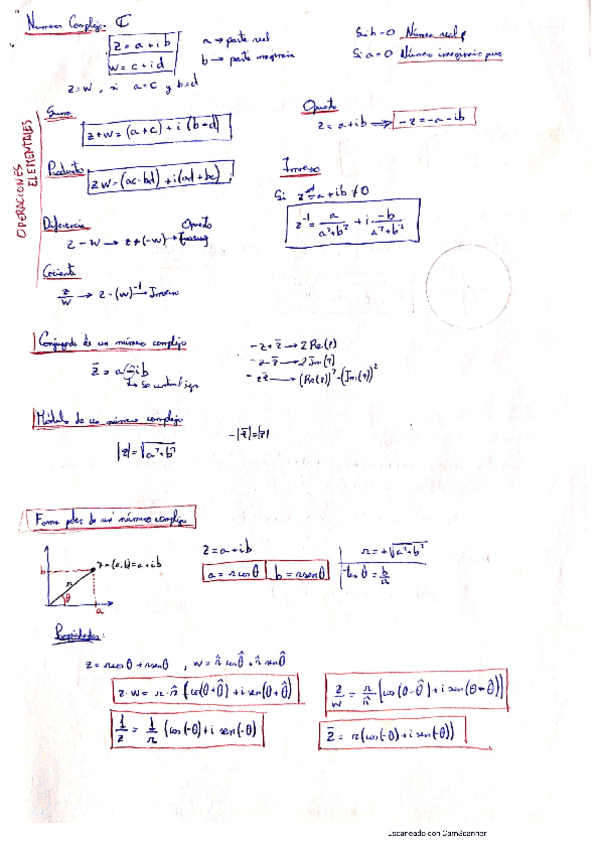 Números Complejos ℂ
z = a + ib
w = c + id
a → parte real
b → parte imaginaria
Si b = 0 Número real
Si a = 0 Número imaginario puro
z = w, si a = c y b = d
OPERACIONES ELEMENTALES
Suma
z + w = (a + c) + i (b + d)
Opuesto
z = a + ib ⟹ -z = -a - ib
Producto
zw = (ac - bd) + i(ad + bc)
Inverso
Si z = a + ib ≠ 0
z⁻¹ = a/(a² + b²) + i · -b/(a² + b²)
Diferencia
Opuesto
z - w → z + (-w) →
Cociente
z/w → z · (w)⁻¹ → Inverso
Conjugado de un número complejo
z̄ = a - ib
↳ Se cambia el signo
- z + z̄ → 2 Re(z)
- z - z̄ → 2 Im(z)
- z z̄ → (Re(z))² - (Im(z))²
Módulo de un número complejo
|z| = √(a² + b²)
- |z̄| = |z|
Forma polar de un número complejo
z = (a, b) = a + ib
b
r
θ
a
z = a + ib
a = r cos θ
b = r sen θ
r = +√(a² + b²)
Propiedades:
z = r cos θ + r sen θ , w = r̂ cos θ̂ + r̂ sen θ̂
z · w = r · r̂ (cos(θ + θ̂) + i sen(θ + θ̂))
z/w = r/r̂ [cos(θ - θ̂) + i sen(θ - θ̂)]
1/z = 1/r (cos(-θ) + i sen(-θ))
z̄ = r(cos(-θ) + i sen(-θ))
Escaneado con CamScanner